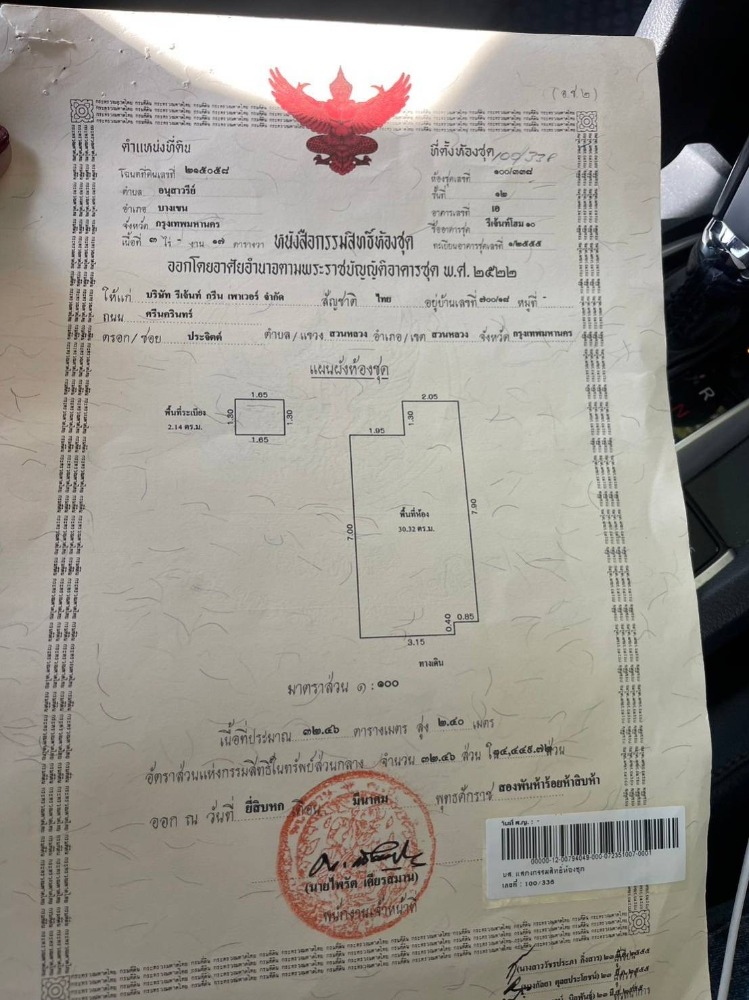 (อ.ช.๒)
ตำแหน่งที่ดิน
โฉนดที่ดินเลขที่ ๒๑๕๐๕๘
ตำบล อนุสาวรีย์
อำเภอ บางเขน
จังหวัด กรุงเทพมหานคร
เนื้อที่ ๓ ไร่ - งาน ๑๗ ตารางวา
ที่ตั้งห้องชุด 100/338
ห้องชุดเลขที่ ๑๐๐/๓๓๘
ชั้นที่ ๑๒
อาคารเลขที่ เอ
ชื่ออาคารชุด รีเจ้นท์โฮม ๑๐
ทะเบียนอาคารชุดเลขที่ ๑/๒๕๕๕
หนังสือกรรมสิทธิ์ห้องชุด
ออกโดยอาศัยอำนาจตามพระราชบัญญัติอาคารชุด พ.ศ. ๒๕๒๒
ให้แก่ บริษัท รีเจ้นท์ กรีน เพาเวอร์ จำกัด สัญชาติ ไทย อยู่บ้านเลขที่ ๗๐๐/๑๘ หมู่ที่ -
ถนน ศรีนครินทร์
ตรอก/ซอย ประจิตต์ ตำบล/แขวง สวนหลวง อำเภอ/เขต สวนหลวง จังหวัด กรุงเทพมหานคร
แผนผังห้องชุด
พื้นที่ระเบียง
2.14 ตร.ม.
1.65
1.30
1.30
1.65
2.05
1.30
1.95
7.00
7.90
พื้นที่ห้อง
30.32 ตร.ม.
0.85
0.40
3.15
ทางเดิน
มาตราส่วน ๑ : ๑๐๐
เนื้อที่ประมาณ ๓๒.๔๖ ตารางเมตร สูง ๒.๔๐ เมตร
อัตราส่วนแห่งกรรมสิทธิ์ในทรัพย์ส่วนกลาง จำนวน ๓๒.๔๖ ส่วน ใน ส่วน
ออก ณ วันที่ ยี่สิบหก เดือน มีนาคม พุทธศักราช สองพันห้าร้อยห้าสิบห้า
(นายไพรัต เตียรสมาน)
พนักงานเจ้าหน้าที่
00000-12-00794049-000-072351007-0001
เลขที่ : 100/338